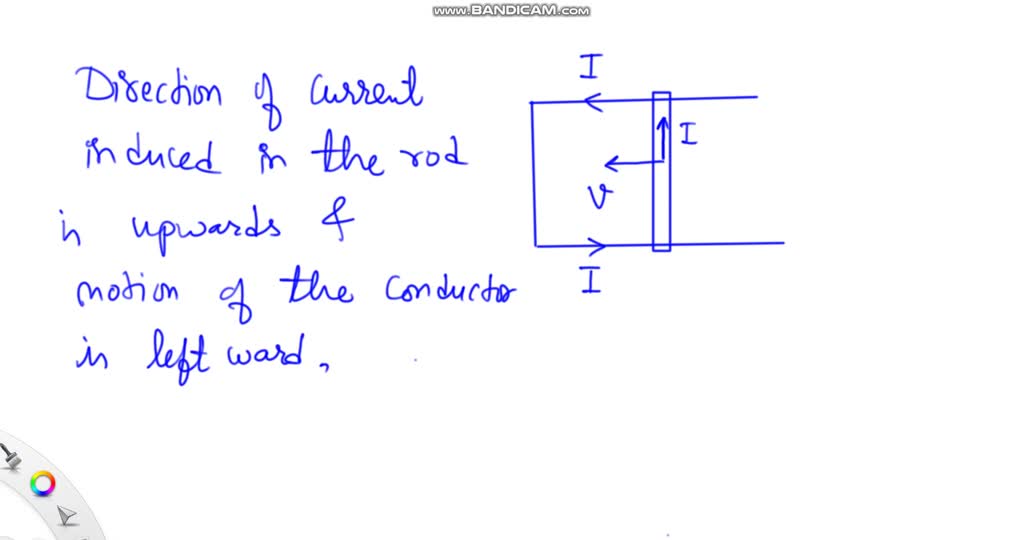 www.BANDICAM.com
Direction of current
induced in the rod
is upwards &
motion of the conductor
is left ward,
I
I
v
I